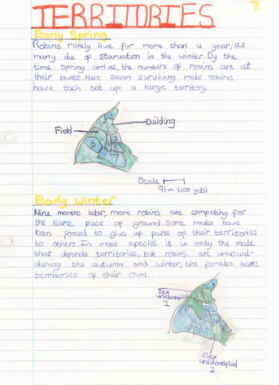 7.
TERRITORIES
Early Spring
Robins rarely live for more than a year,
many die of starvation in the winter. By the
time Spring arrives, the numbers of robins are at
their lowest. Each surviving male robins
have each set up a large territory.
Building
Field
Scale
91m (100 yds)
Early Winter
Nine months later, more robins are competing for
the same piece of ground. Some males have
been forced to give up parts of their territories
to others. In most species it is only the male
that defends territories, but robins are unusual
during the autumn and winter, the females have
territories of their own.
Area
unoccupied
1
Area
unoccupied
2